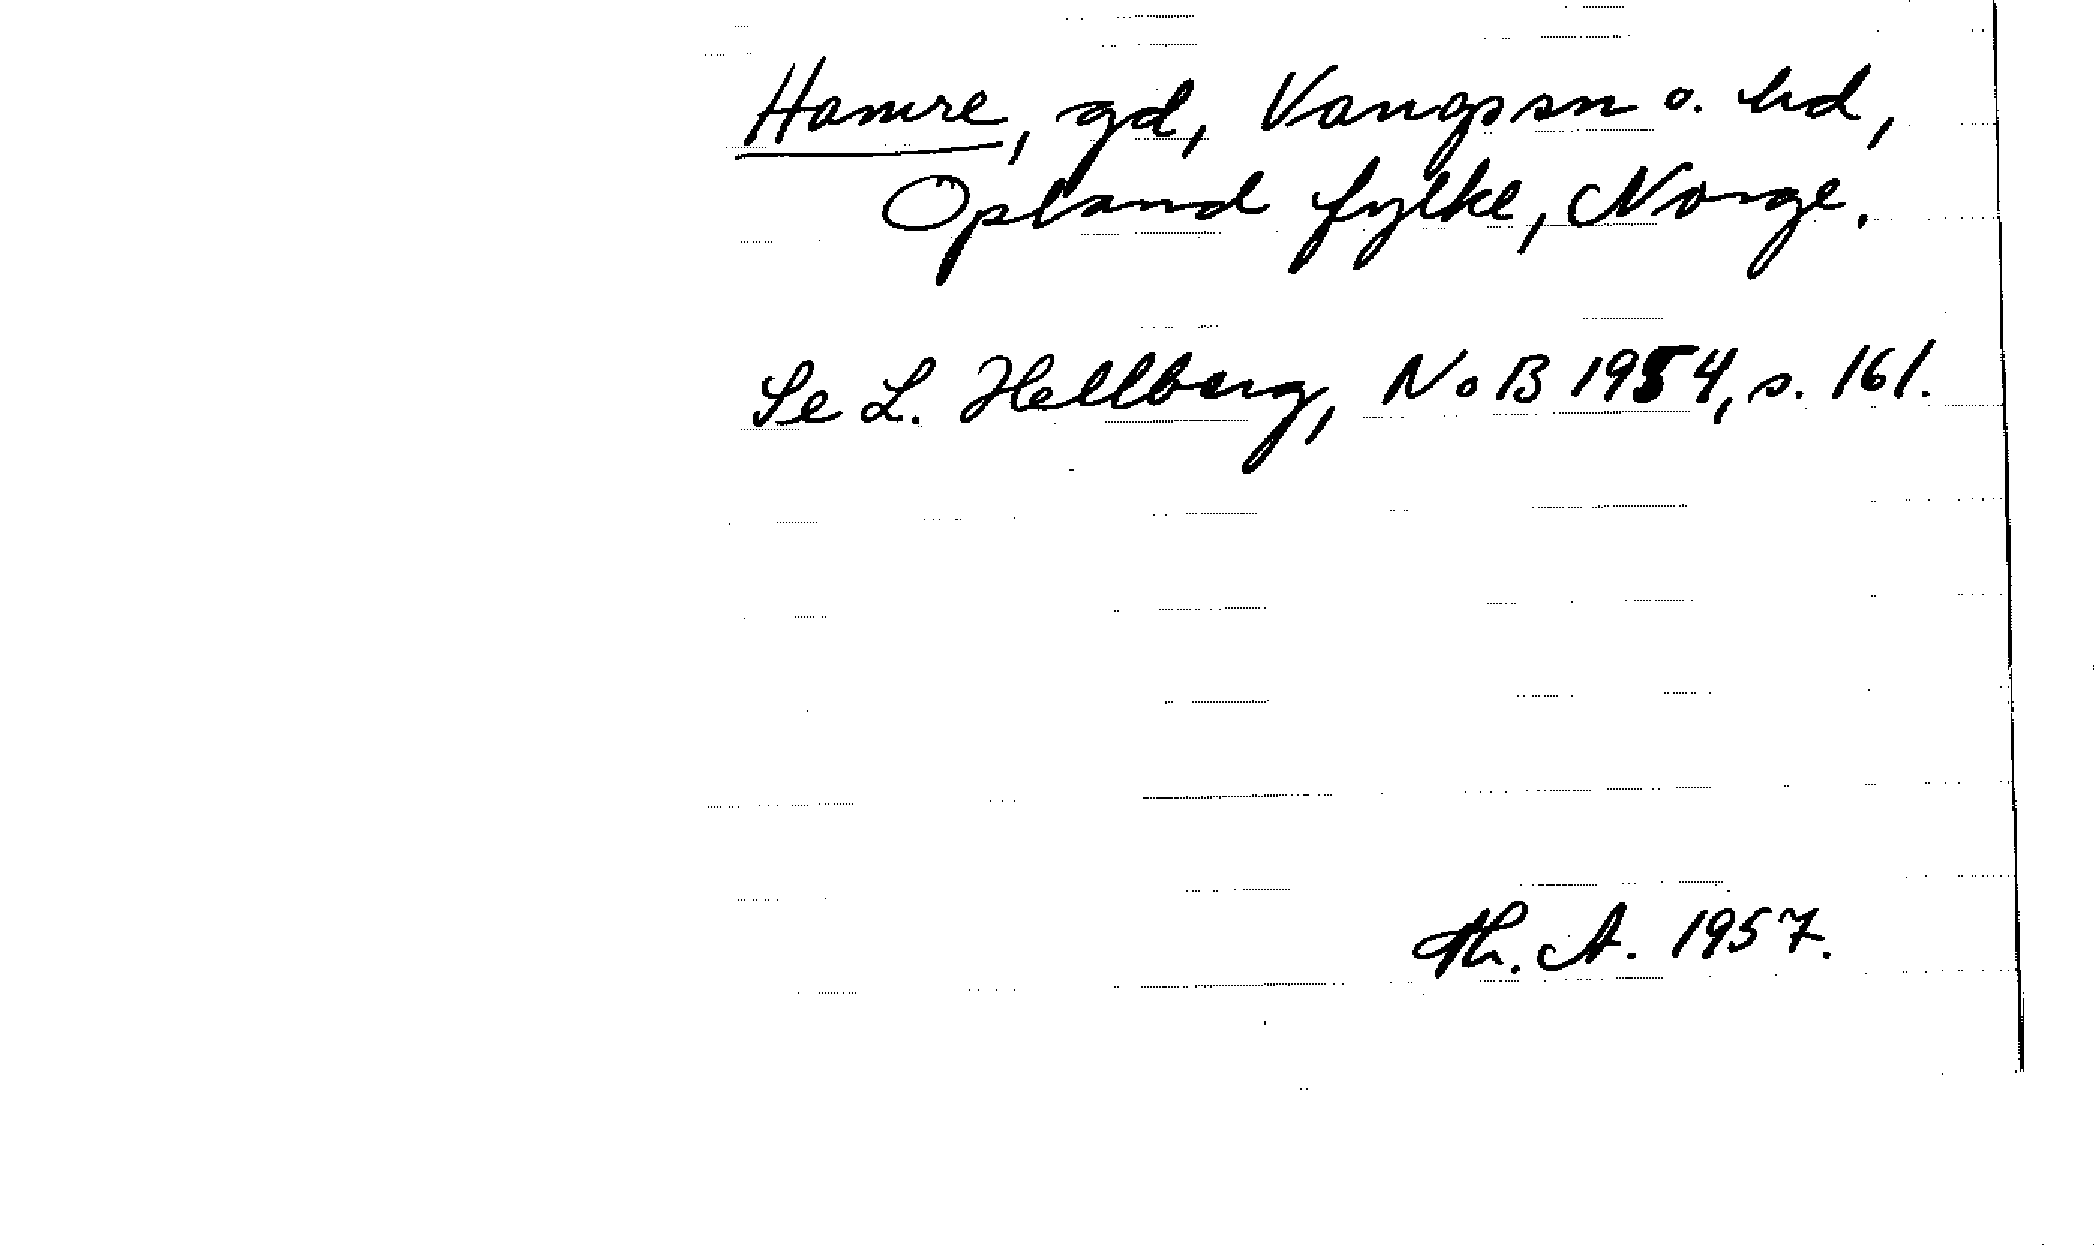 Hamre, gd, Vangs sn o. hd,
Opland fylke, Norge.
Se L. Hellberg, NoB 1954, s. 161.
Th. A. 1957.